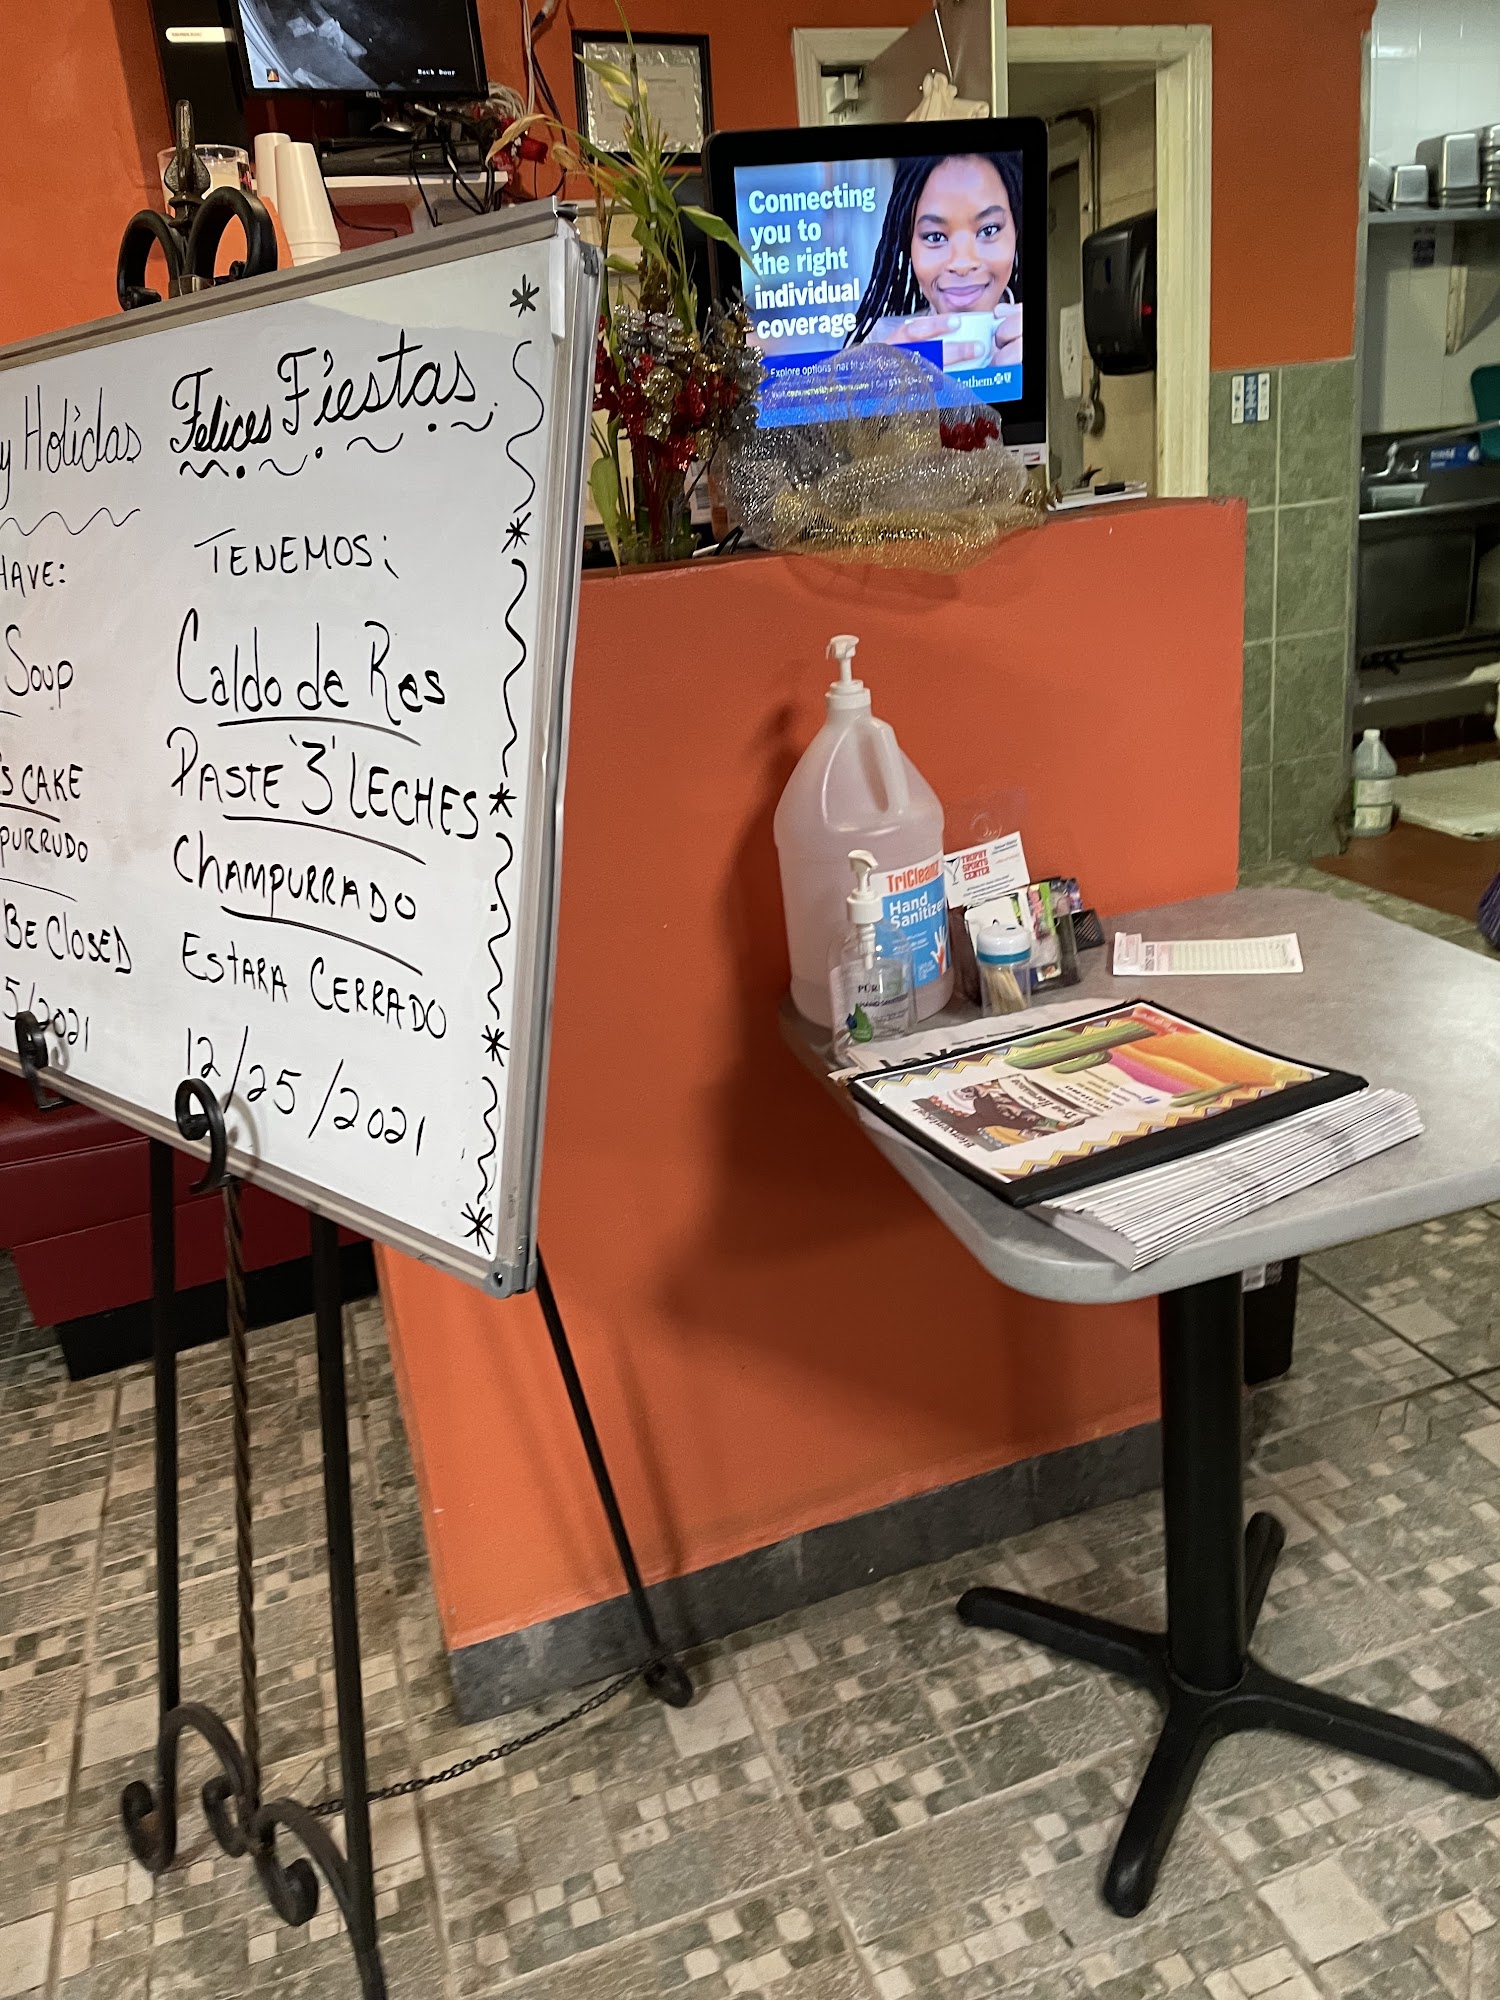 y Holidas
HAVE:
Soup
'S CAKE
PURRUDO
BE CLOSED
5/2021
Felices Fiestas
TENEMOS;
Caldo de Res
PASTE '3' LECHES
CHAMPURRADO
ESTARA CERRADO
12/25/2021
Back Door
DELL
Connecting
you to
the right
individual
coverage
Explore options that fit
Anthem
TriCleanz
Hand
Sanitizer
TROPHY
SPORTS
CENTER
La V
Bienvenidos!